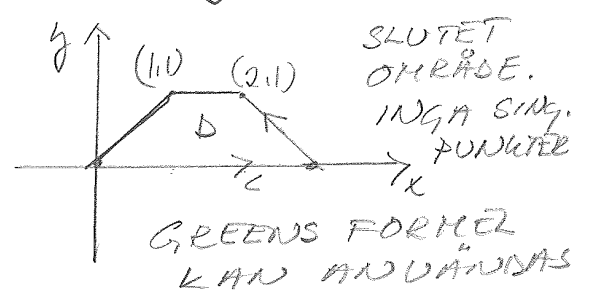 y
(1,1) (2,1)
D
C
x
SLUTET
OMRÅDE.
INGA SING.
PUNKTER
GREENS FORMEL
KAN ANVÄNDAS